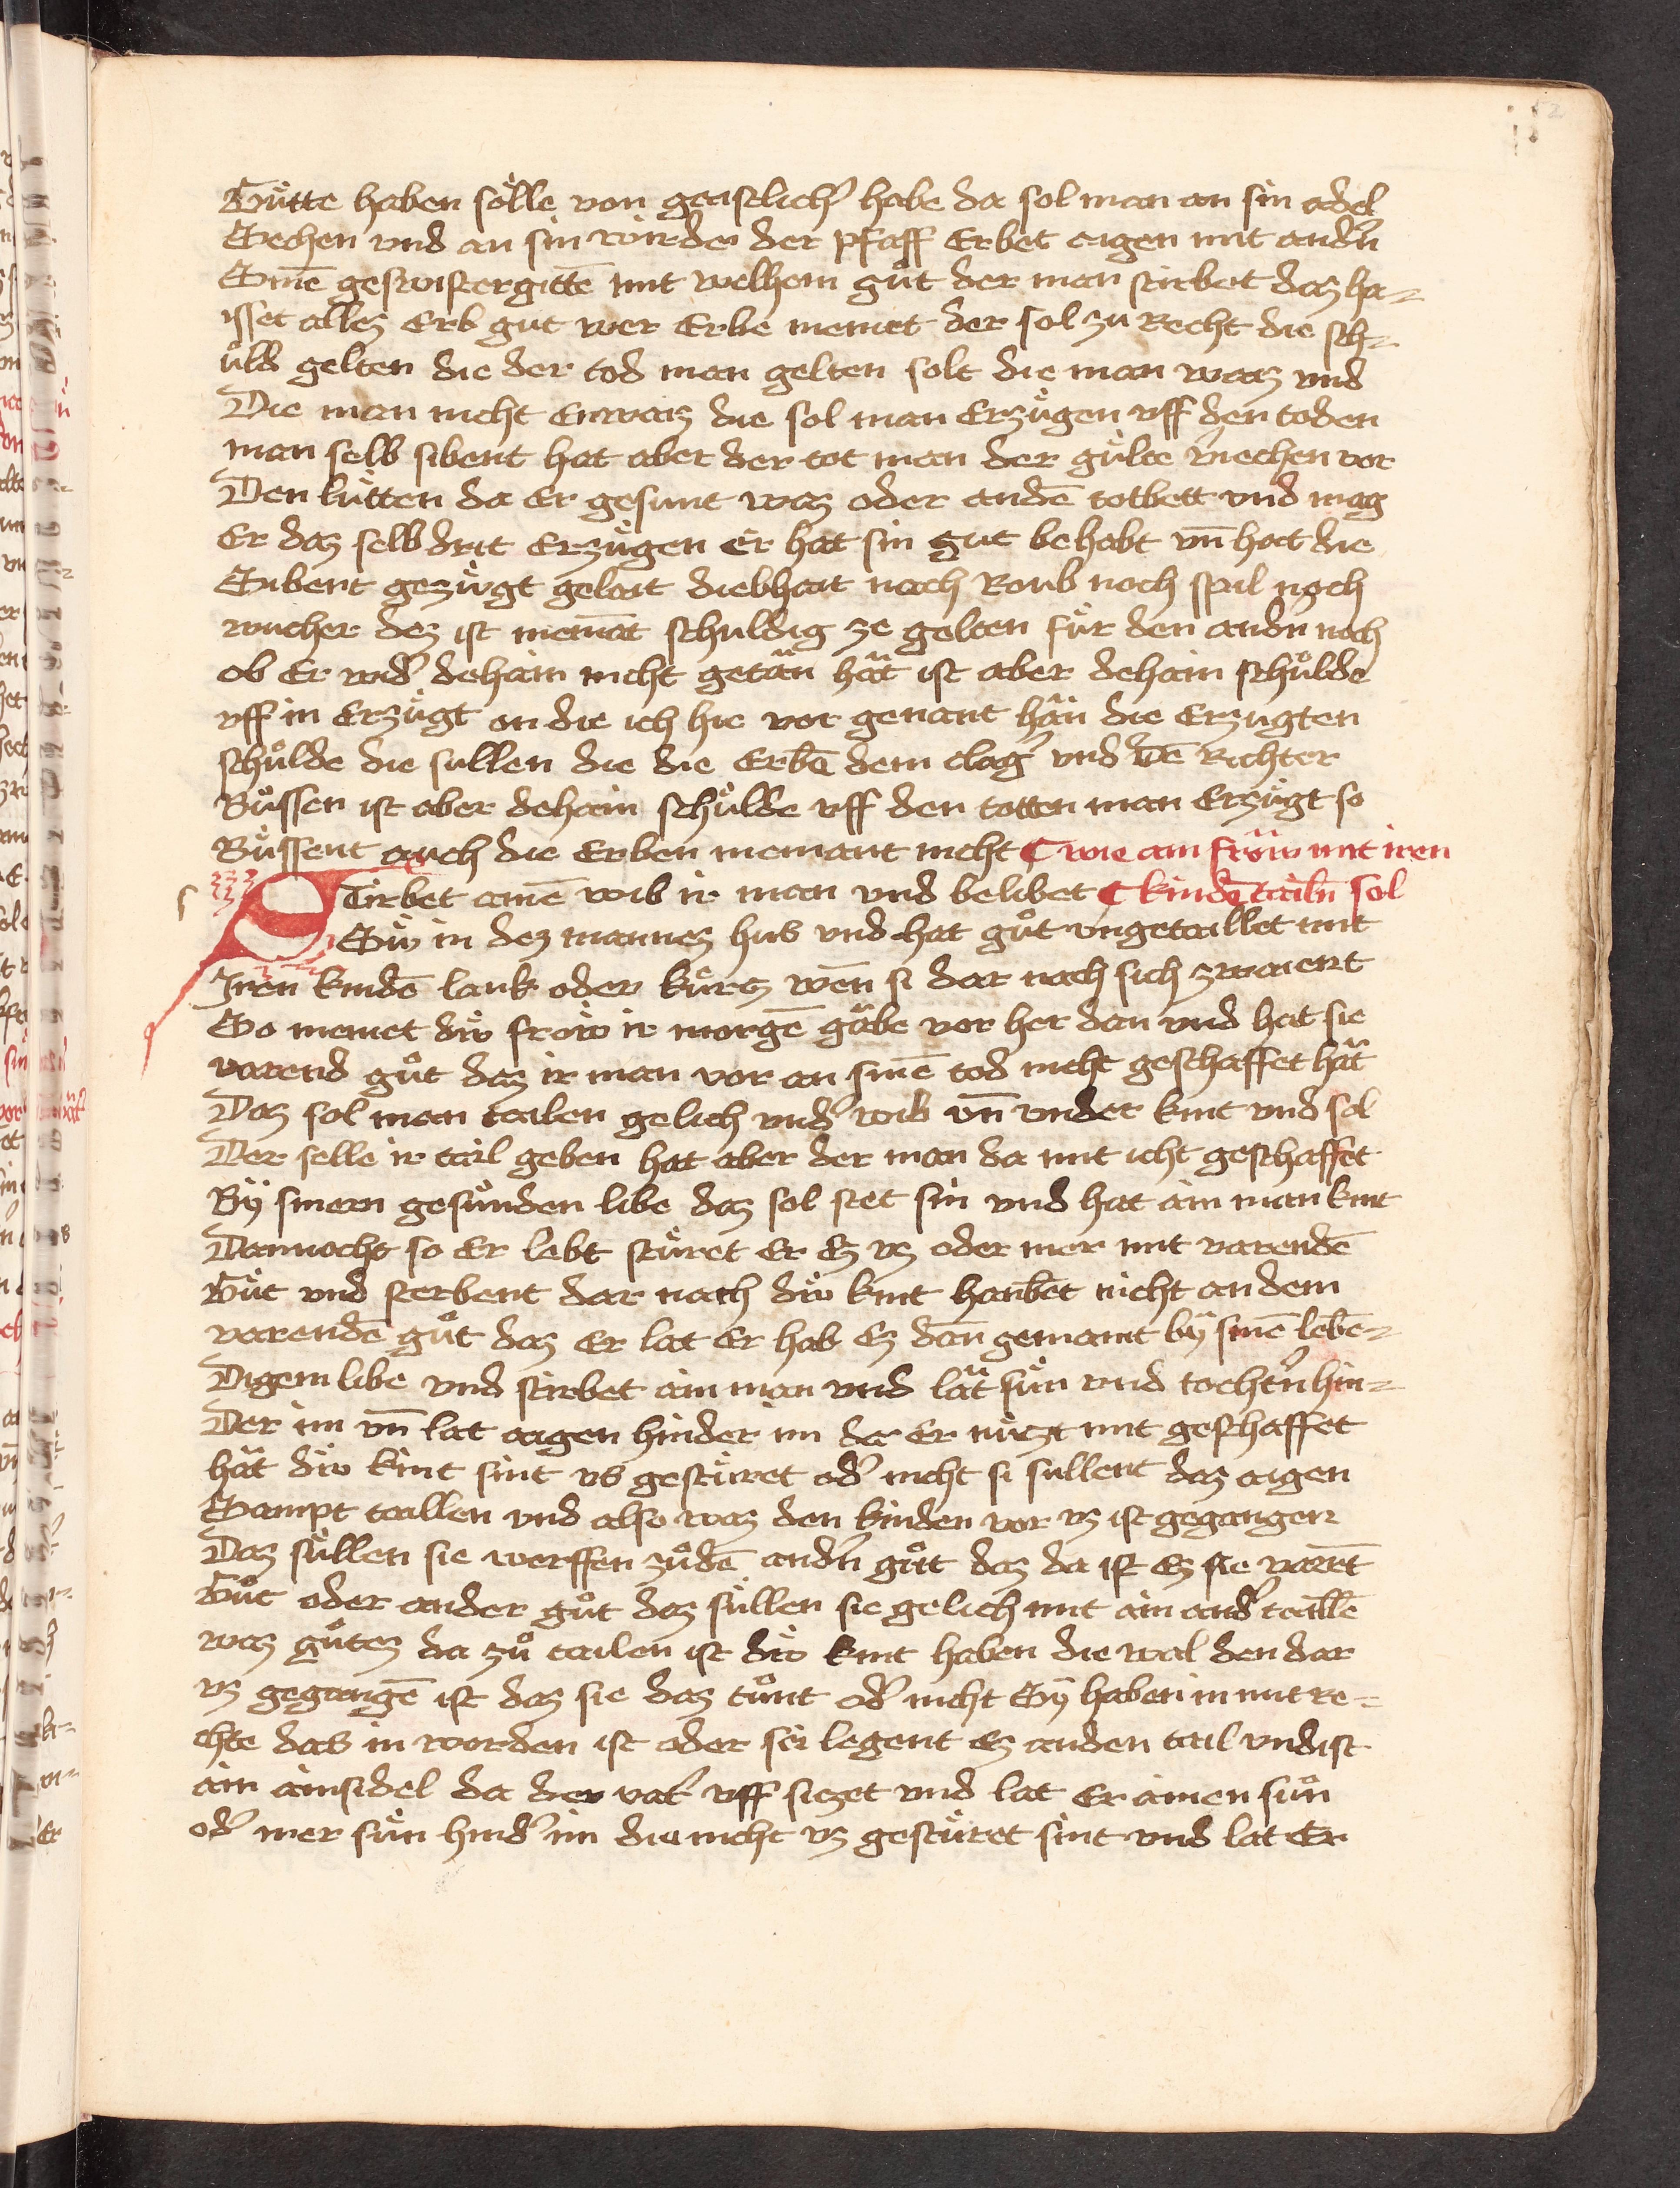 52
Gu̍tte haben sölle von gaistlich' habe da sol man an sin adel
Sechen vnd an sin wirdei der pfaff Erbet aigen mit andn̄
Sinē geswistergittē mit welhem gůt der man stirbet daz ha-
isset allez Erb gut wer Erbe niemet der sol zu Recht die sch-
ůld gelten die der tod man gelten solt die man waiz vnd
Die man nicht Enwaiz die sol man Erzu̍gen vff den toden
man selb sibent hat aber der tot man der gu̍lte v'iechen vor
Den lu̍tten da Er gesunt waz oder andē totbett vnd mag
Er daz selb drit Erzu̍gen er hat sin gut behabt vn̄ hat die
Sibent gezu̍gt gelait diebhait nach Roub noch spil noch
wucher dez ist niemāt schuldig ze gelten fu̍r den andn̄ noch
ob Er wid' dehain nicht getän hät ist aber dehain schu̍lde
vff in Erzu̍gt on die ich hie vor genant hän die Erzugten
schůlde die sullen die die Erbē dem clag' vnd dē Richter
Bu̍ssen ist aber dehain schůlde vff den totten man Erzu̍gt so
Bu̍ssent auch die Erben niemant nicht ¶ wie ain fröw mit iren
Stirbet ainē wib ir man vnd belibet ¶ kindē tailn̄ sol
Siv̍ in dez mannez hus vnd hat gůt vngetaillet mit
Iren kindē lank oder ku̍rtz wen̄ si dar nach sich zwaient
So niemet div̍ fröw ir morgē gäbe vor her dan vnd hat sie
varend gůt daz ir man vor an sinē tod nicht geschaffet hät
Daz sol man tailen gelich vnd' wib vn̄ vnder kint vnd sol
Der selle ir tail geben hat aber der man da mit icht geschaffet
By̍ sinem gesůnden libe daz sol stet sin vnd hat ain man kint
Dannocht so Er lebt stu̍ret Er Ez vz oder mer mit varendē
Gůt vnd sterbent dar nach div̍ kint hanbēt nicht an dem
varendē gůt daz Er lat Er hab Ez dan̄ gemaint by̍ sinē lebē-
Digem libe vnd stirbet ain man vnd lät su̍n vnd tochtn̄ hin-
Der im vn̄ lat aigen hinder im da Er nu̍tzt mit geschaffet
hät div̍ kint sint vs gestu̍wret od' nicht si sullent daz aigen
Sampt taillen vnd also waz den kinden vor vz ist gegangen
Daz su̍llen sie werffen zůdē andn̄ gůt daz da ist Ez sie varēt
Gůt oder ander gůt daz su̍llen sie gelich mit ain and' taillē
waz gůtez da zů tailen ist div̍ kint haben die wal den dar
vz gegangē ist daz sie daz tůnt od' nicht Sy̍ haben in mit re-
chte das in worden ist oder sii legent Ez anden tail vndist
ain ainsidel da der vat' vff siczet vnd lat Er ainen sůn
od' mer su̍n hind' im die nicht vz gestu̍ret sint vnd lat Er